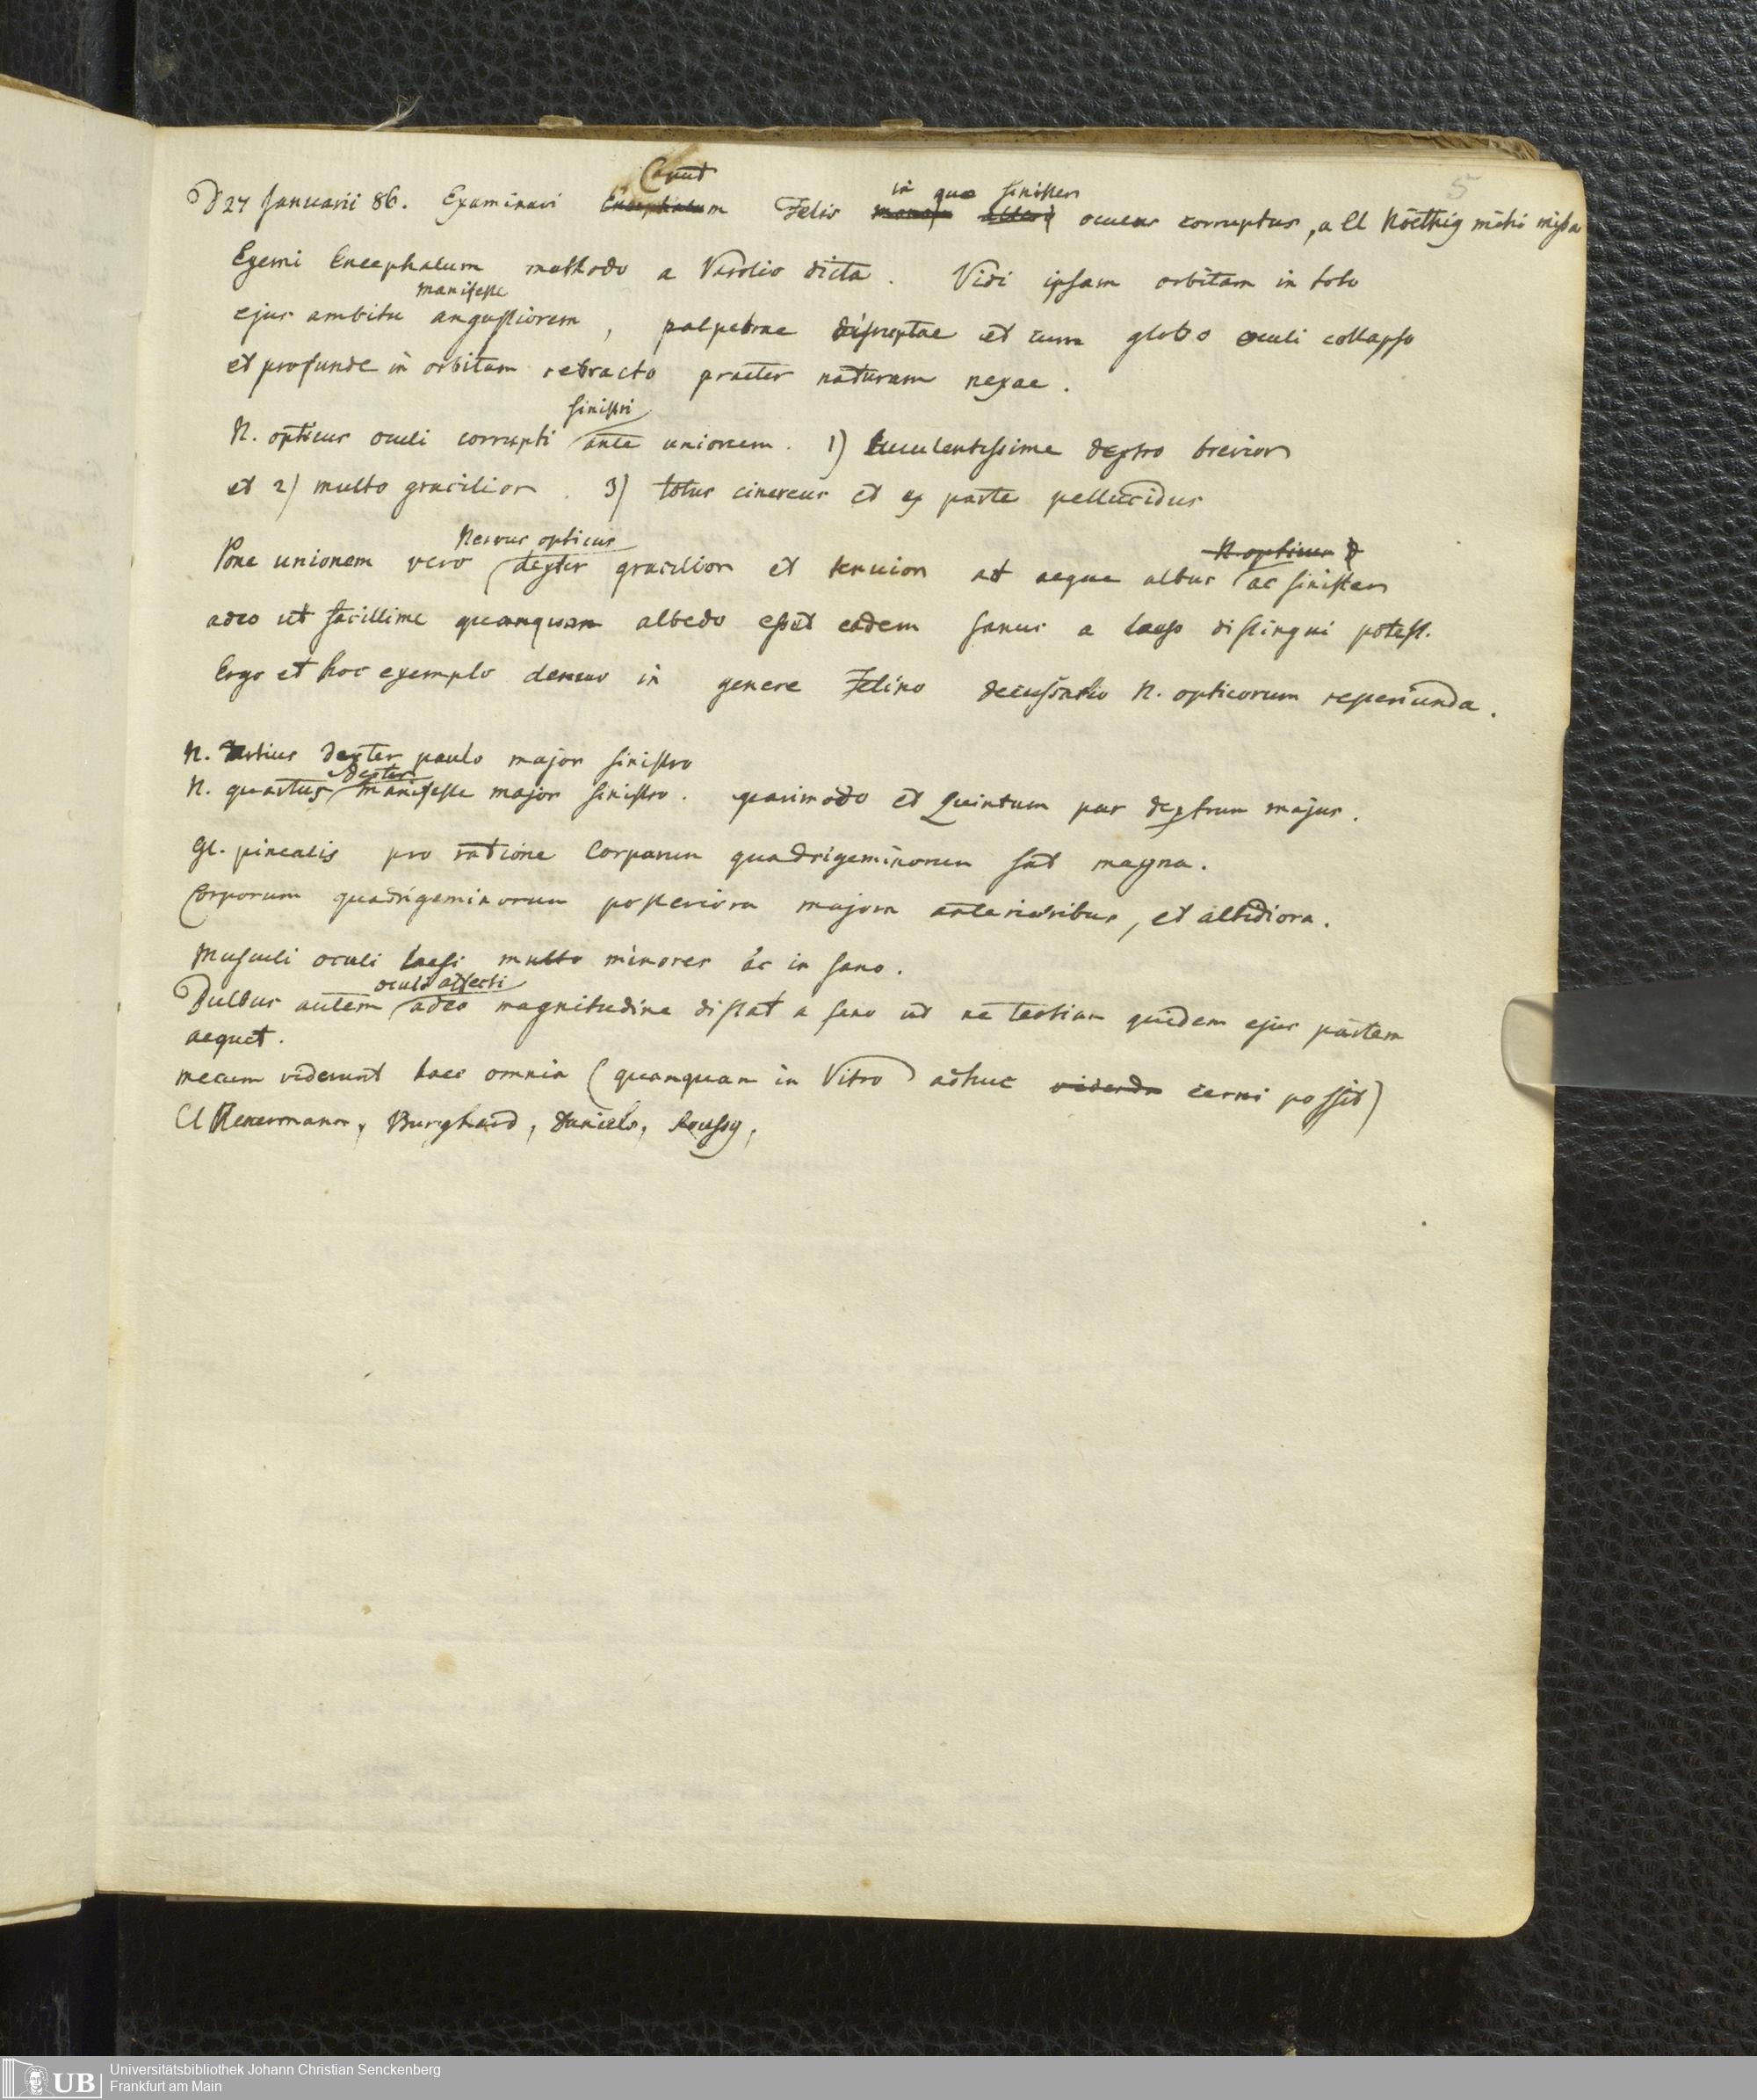 5
D 27 Januarii 86. Examinavi Caput Felis in quo sinister oculus corruptus, a Cl Nöethig mihi missa
Exemi Encephalum methodo a Varolio dicta. Vidi ipsam orbitam in toto
ejus ambitu manifeste angustiorem, palpebrae disruptae et cum globo oculi collapso
et profunde in orbitam retracto praeter naturam nexae.
N. opticus oculi corrupti sinistri ante unionem. 1) Luculentissime dextro brevior
et 2) multo gracilior. 3) totus cinereus et ex parte pellucidus
Pone unionem vero Nervus opticus dexter gracilior et tenuior at aeque albus ac sinister
adeo ut facillime quamquam albedo esset eadem sanus a laeso distingui potest.
Ergo et hoc exemplo denuo in genere Felino decussatio N. opticorum reperiunda.
N. tertius dexter paulo major sinistro
N. quartus dexter manifeste major sinistro. quasimodo et Quintum par dextrum majus.
Gl. pinealis pro ratione Corporum quadrigeminorum sat magna.
Corporum quadrigeminorum posteriora majora anterioribus, et albidiora.
Musculi oculi laesi multo minores ac in sano.
Bulbus autem oculi affecti adeo magnitudine distat a sano ut ne tertiam quidem ejus partem
aequet.
mecum viderunt haec omnia (quamquam in Vitro adhuc videnda cerni possit)
Cl Akermann, Burghard, Daniels,
Universitätsbibliothek Johann Christian Senckenberg
Frankfurt am Main
UB